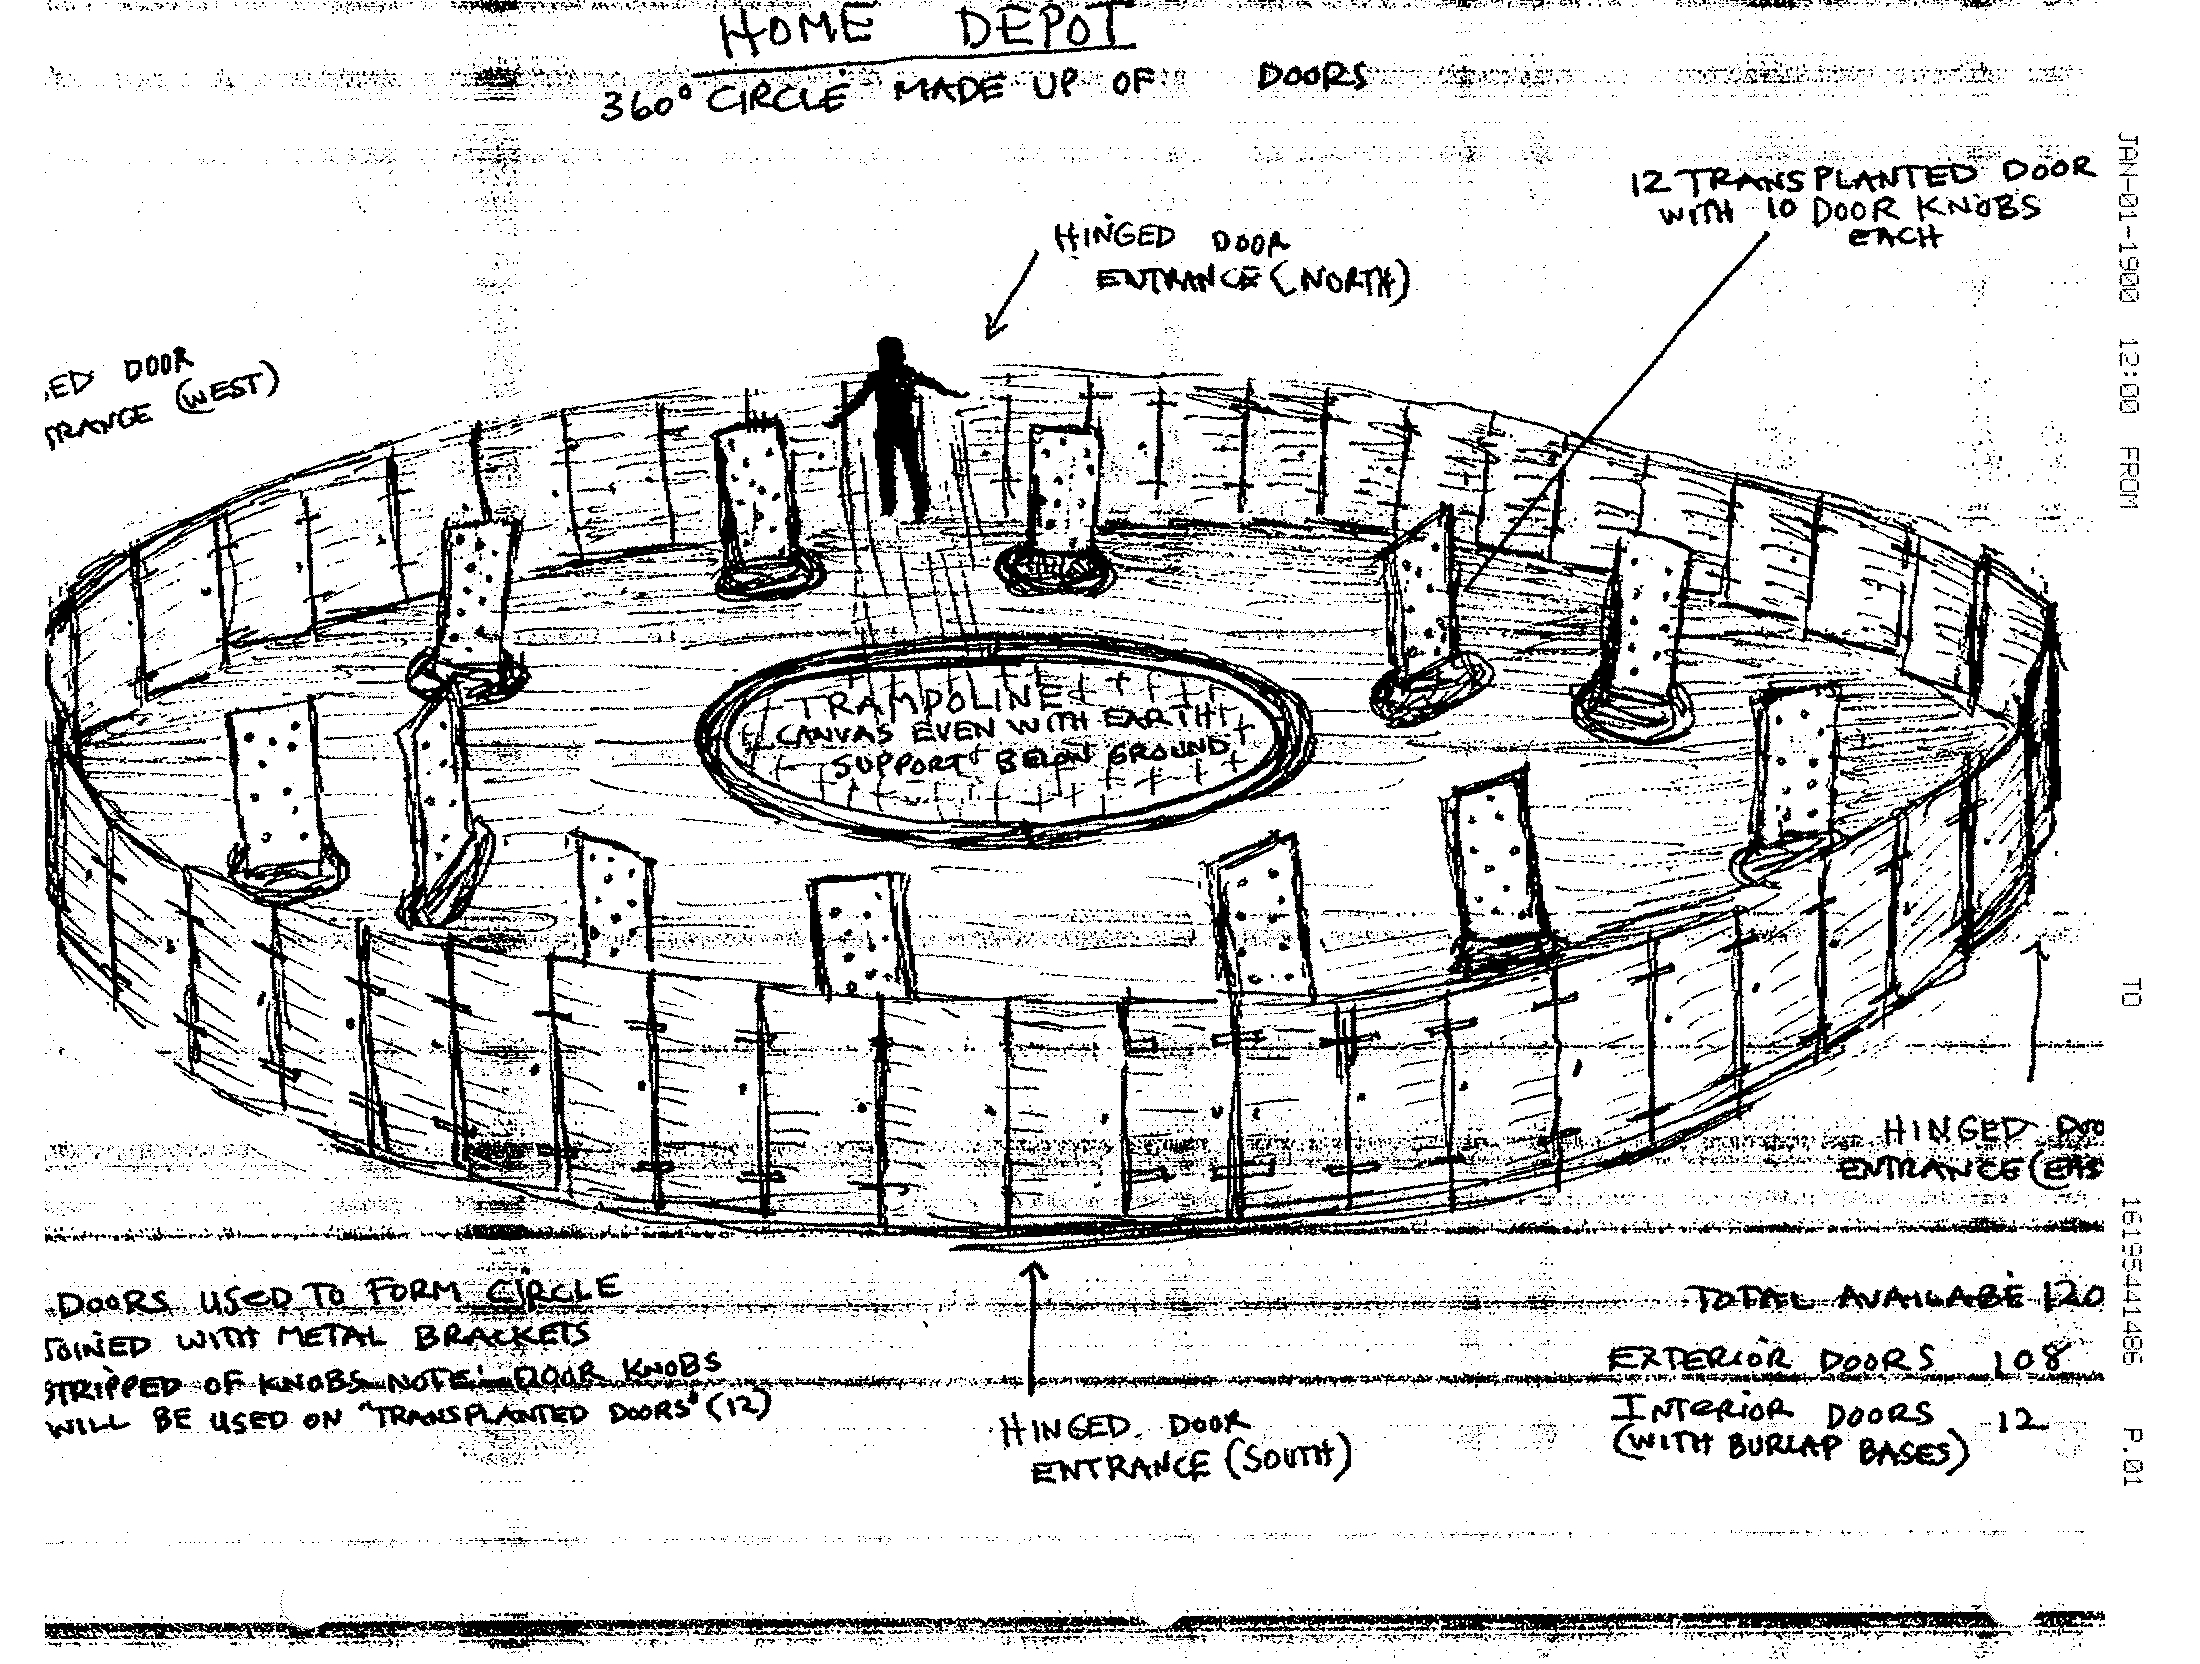 HOME DEPOT
360° CIRCLE MADE UP OF DOORS
12 TRANSPLANTED DOOR
WITH 10 DOOR KNOBS
EACH
HINGED DOOR
ENTRANCE (NORTH)
ED DOOR
TRANCE (WEST)
TRAMPOLINE
CANVAS EVEN WITH EARTH
SUPPORT BELOW GROUND
HINGED DOO
ENTRANCE (EAS
DOORS USED TO FORM CIRCLE
JOINED WITH METAL BRACKETS
STRIPPED OF KNOBS NOTE: DOOR KNOBS
WILL BE USED ON "TRANSPLANTED DOORS" (12)
HINGED DOOR
ENTRANCE (SOUTH)
TOTAL AVAILABE 120
EXTERIOR DOORS 108
INTERIOR DOORS 12
(WITH BURLAP BASES)
JAN-01-1900 12:00 FROM TO 16195441486 P.01